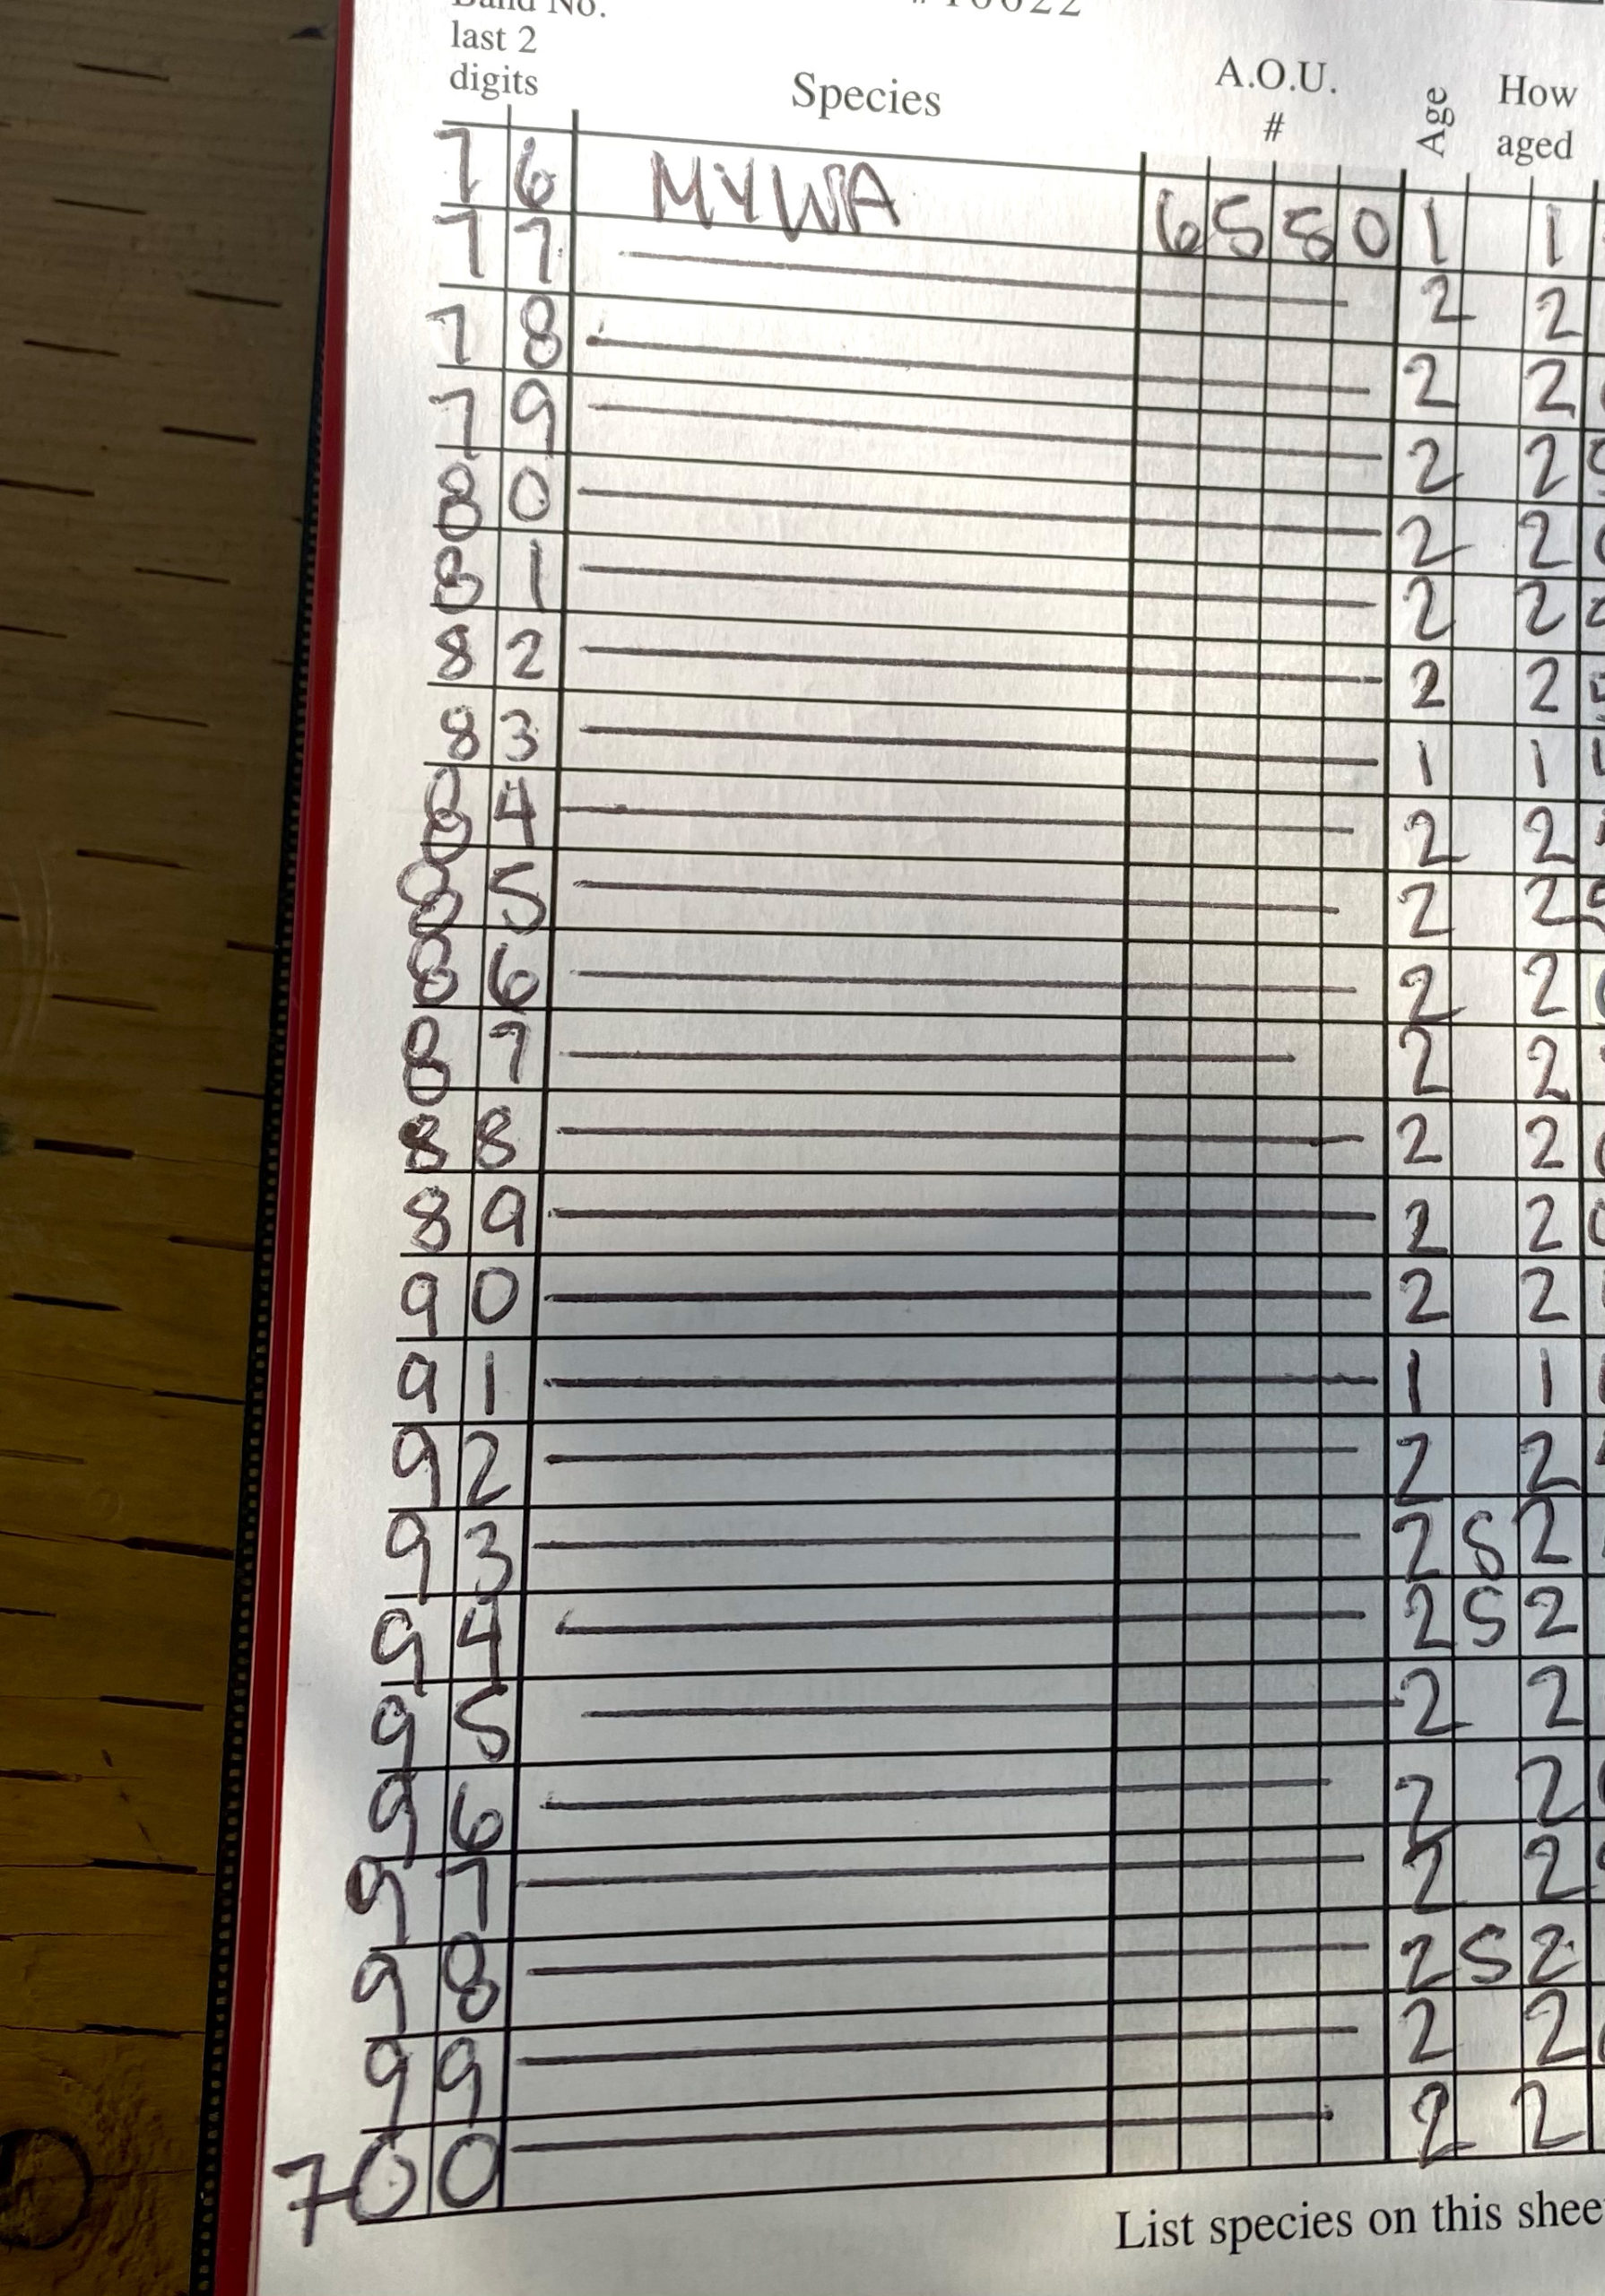 Band No.
last 2
digits
Species
A.O.U.
#
Age
How
aged
76 MYWA 6550 1 1
77 2 2
78 2 2
79 2 2
80 2 2
81 2 2
82 2 2
83 1 1
84 2 2
85 2 2
86 2 2
87 2 2
88 2 2
89 2 2
90 2 2
91 1 1
92 2 2
93 2 S 2
94 2 S 2
95 2 2
96 2 2
97 2 2
98 2 S 2
99 2 2
700 2 2
List species on this shee